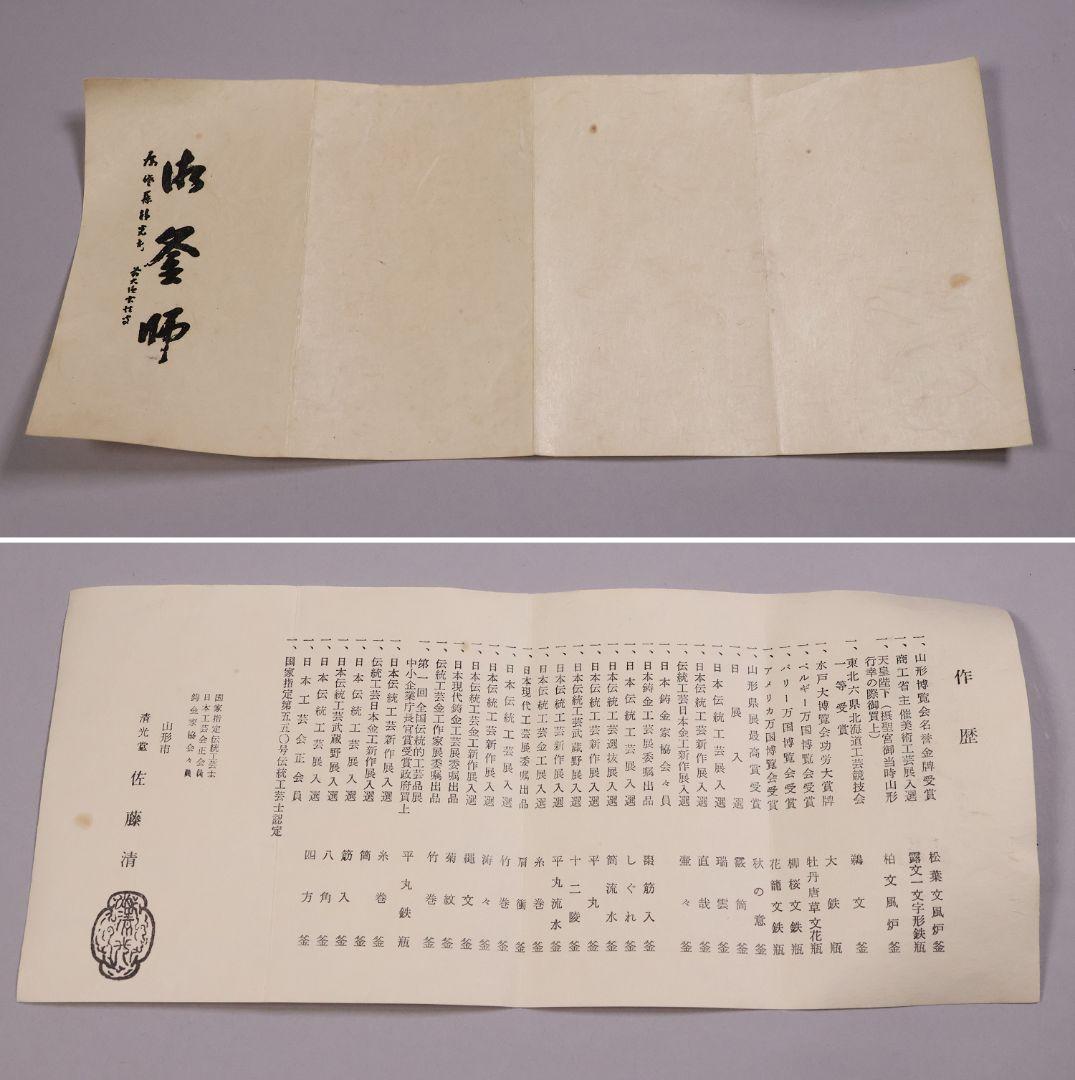 御釜師
作歴
一、山形博覧会名誉金牌受賞 松葉文風炉釜
一、商工省主催美術工芸展入選 露文一文字形鉄瓶
一、天皇陛下(摂聖宮御当時山形
行幸の際御買上) 柏文風炉釜
一、東北六県北海道工芸競技会
一等受賞 鶴文釜
一、水戸大博覧会功労大賞牌 大鉄瓶
一、ベルギー万国博覧会受賞 牡丹唐草文花瓶
一、パリー万国博覧会受賞 柳桜文鉄瓶
一、アメリカ万国博覧会受賞 花籠文鉄瓶
一、山形県展最高賞受賞 秋の意釜
一、日展入選 霰筒釜
一、日本伝統工芸展入選 瑞雲釜
一、日本伝統工芸新作展入選 直哉釜
一、伝統工芸日本金工新作展入選 壷々釜
一、日本鋳金家協会々員
一、日本鋳金工芸展委嘱出品 棗筋入釜
一、日本伝統工芸展入選 しぐれ釜
一、日本伝統工芸選抜展入選 筒流水釜
一、日本伝統工芸新作展入選 平丸釜
一、日本伝統工芸武蔵野展入選 十二陵釜
一、日本伝統工芸新作展入選 平丸流水釜
一、日本伝統工芸金工展入選 糸巻釜
一、日本現代工芸展委嘱出品 肩衝釜
一、日本伝統工芸展入選 竹巻釜
一、日本伝統工芸新作展入選 海々釜
一、日本伝統工芸金工新作展入選 縄文釜
一、日本現代鋳金工芸展委嘱出品 菊紋釜
一、伝統工芸金工作家展委嘱出品 竹巻釜
一、第一回全国伝統的工芸品展
中小企業庁長官賞受賞政府買上 平丸鉄瓶
一、日本伝統工芸新作展入選 糸巻釜
一、伝統工芸日本金工新作展入選 筒釜
一、日本伝統工芸展入選 筋入釜
一、日本伝統工芸武蔵野展入選 八角釜
一、日本伝統工芸展入選 四方釜
一、日本工芸会正会員
一、国家指定第五五〇号伝統工芸士認定
国家指定伝統工芸士
日本工芸会正会員
鋳金家協会々員
山形市
清光堂 佐藤清